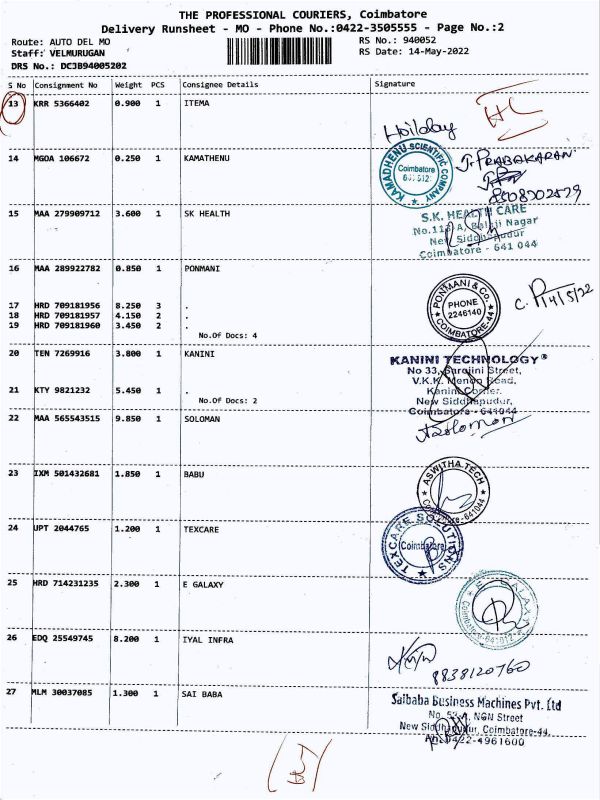 THE PROFESSIONAL COURIERS, Coimbatore
Delivery Runsheet - MO - Phone No.:0422-3505555 - Page No.:2
Route: AUTO DEL MO RS No.: 940052
Staff: VELMURUGAN RS Date: 14-May-2022
DRS No.: DCJB94005202
S No Consignment No Weight PCS Consignee Details Signature
13 KRR 5366402 0.900 1 ITEMA
Hoilday
14 MGOA 106672 0.250 1 KAMATHENU
KAMADHENU SCIENTIFIC COMPANY
Coimbatore
J. PRABAKARAN
15 MAA 279909712 3.600 1 SK HEALTH
S.K. HEALTH CARE
Balaji Nagar
New Siddhapudur
Coimbatore - 641 044
16 MAA 289922782 0.850 1 PONMANI
17 HRD 709181956 8.250 3 .
18 HRD 709181957 4.150 2 .
19 HRD 709181960 3.450 2 .
No.Of Docs: 4
PONMANI & Co.
PHONE
2246140
COIMBATORE-44
14/5/22
20 TEN 7269916 3.800 1 KANINI
21 KTY 9821232 5.450 1 .
No.Of Docs: 2
KANINI TECHNOLOGY
No 33, Sarojini Street,
V.K.K. Menon Road,
Kanini Corner,
New Siddhapudur,
Coimbatore - 641044
22 MAA 565543515 9.850 1 SOLOMAN
Solomon
23 IXM 501432681 1.850 1 BABU
ASWITHA TECH
Coimbatore-641044
24 UPT 2044765 1.200 1 TEXCARE
TEXCARE SOLUTIONS
Coimbatore
25 HRD 714231235 2.300 1 E GALAXY
E GALAXY
Coimbatore-641012
26 EDQ 25549745 8.200 1 IYAL INFRA
8838120760
27 MLM 30037085 1.300 1 SAI BABA
Saibaba Business Machines Pvt. Ltd
NGN Street
New Siddhapudur, Coimbatore-44.
Ph: 0422-4961600